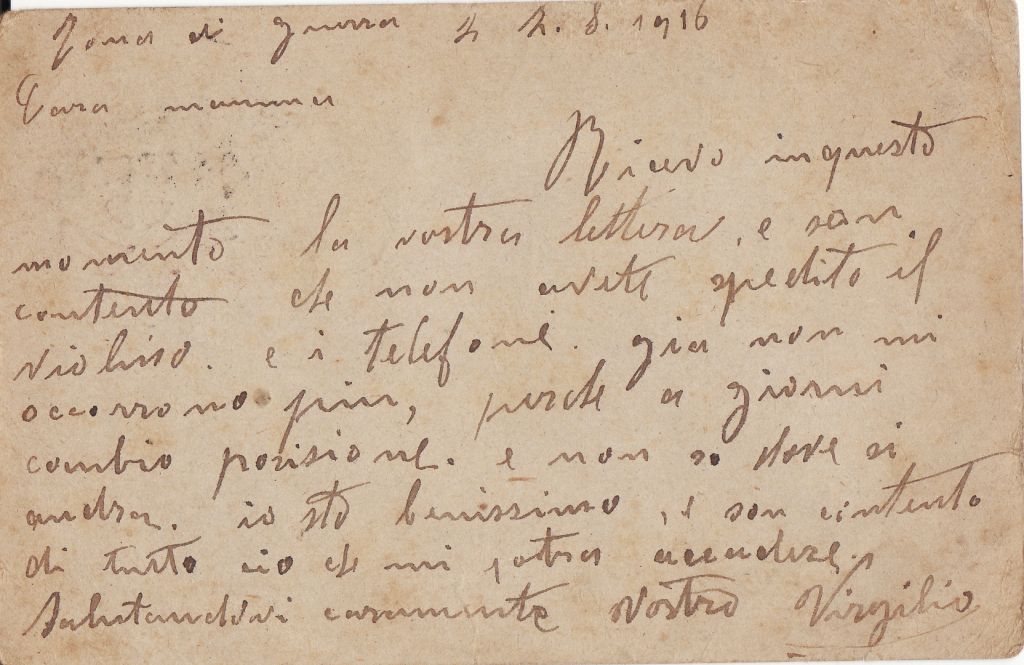 Zona di guerra 2 2. 8. 1916
Cara mamma
Ricevo inquesto
momento la vostra lettera, e son
contento che non avete spedito il
violino. e i telefoni. gia non mi
occorrono piu, perche a giorni
combio posisione. e non so dove si
andra. io sto benissimo, e son contento
di tutto cio che mi potra accadere.
Salutandovi caramente vostro Virgilio